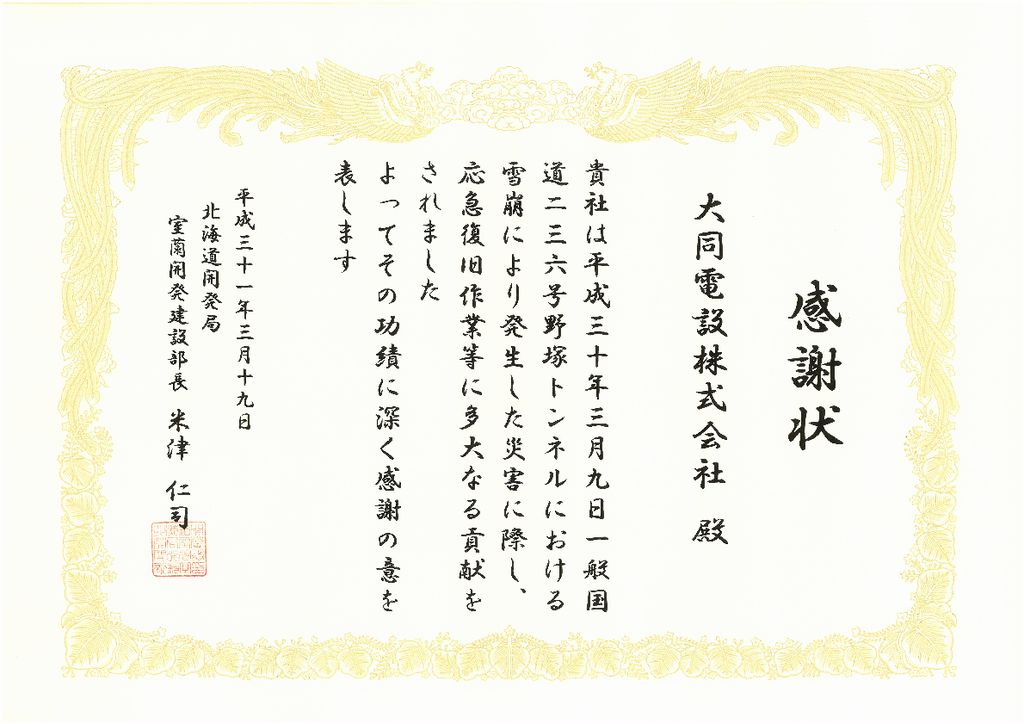 感謝状
大同電設株式会社 殿
貴社は平成三十年三月九日一般国
道二三六号野塚トンネルにおける
雪崩により発生した災害に際し、
応急復旧作業等に多大なる貢献を
されました
よってその功績に深く感謝の意を
表します
平成三十一年三月十九日
北海道開発局
室蘭開発建設部長 米津 仁司